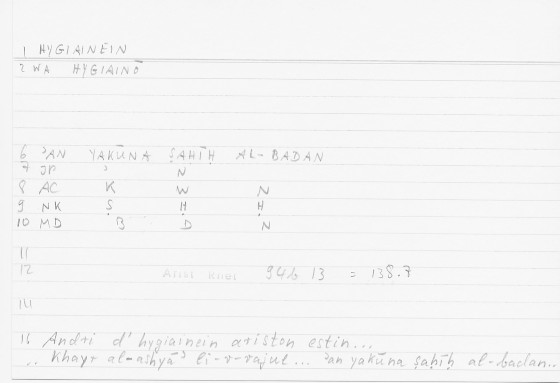 1 HYGIAINEIN
2 WA HYGIAINŌ
6 ʾAN YAKŪNA ṢAḤĪḤ AL-BADAN
7 JP ʾ N
8 AC K W N
9 NK Ṣ Ḥ Ḥ
10 MD B D N
11
12 Arist Rhet 94b 13 = 138.7
14
15 Andri d' hygiainein ariston estin...
.. Khayr al-ashyāʾ li-r-rajul... ʾan yakūna ṣaḥīḥ al-badan..